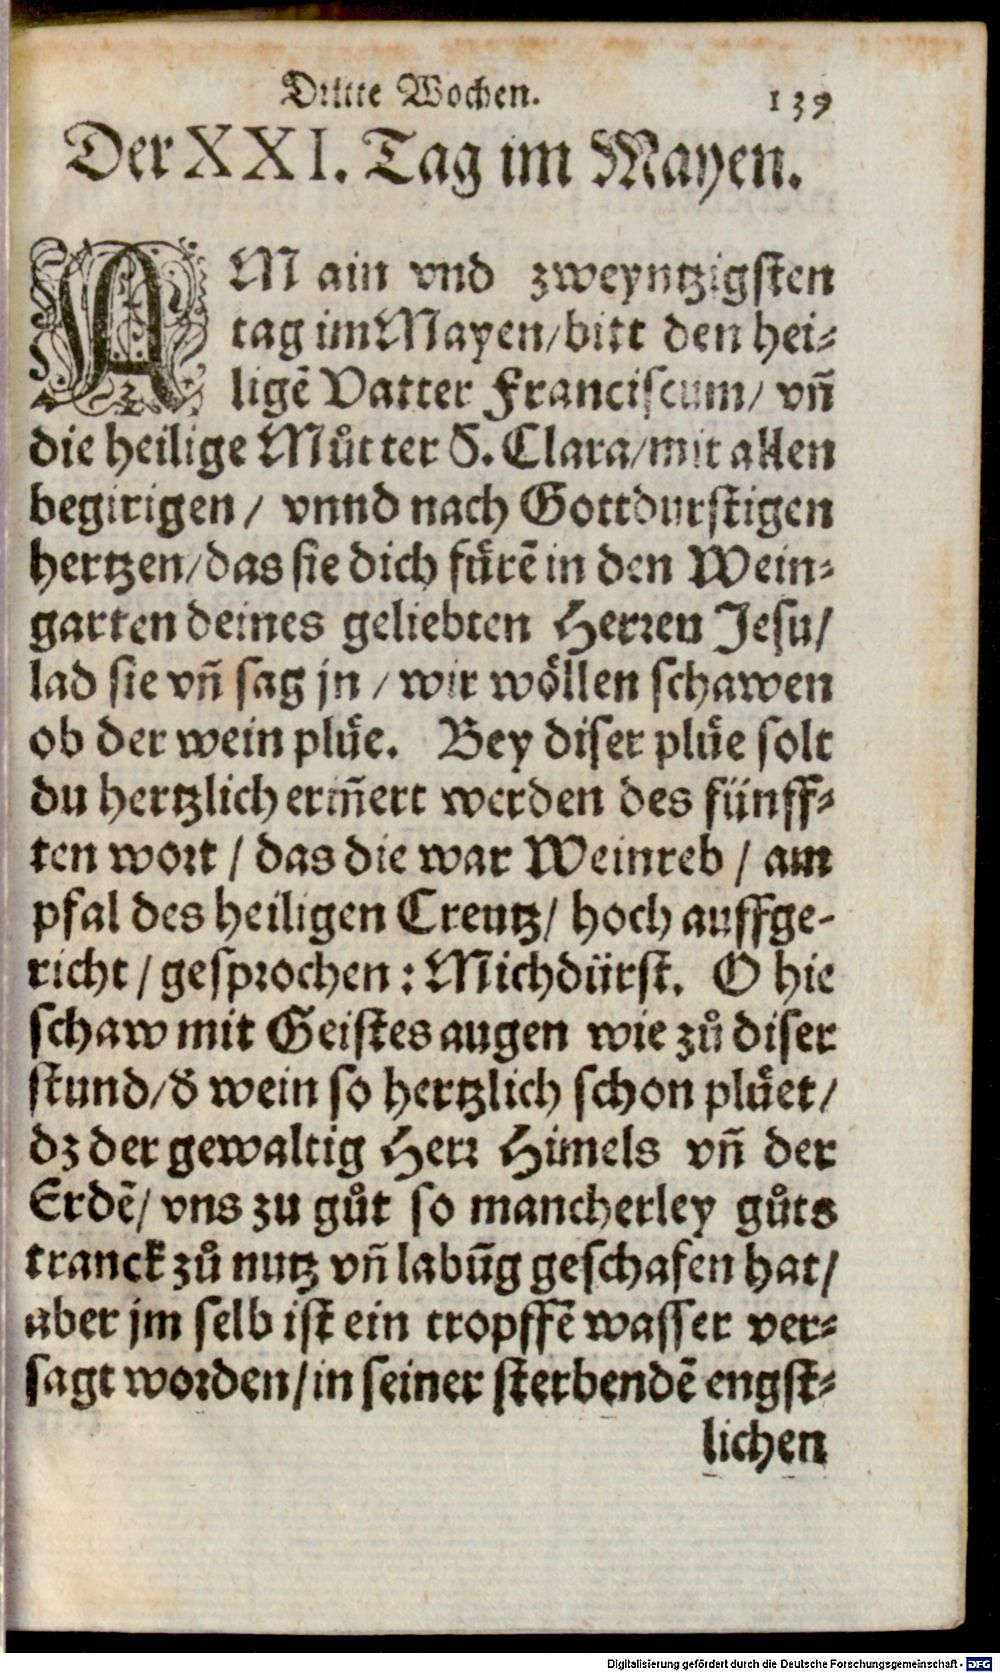 Dritte Wochen. 139
Der XXI. Tag im Mayen.
AM ain vnd zweyntzigsten
tag im Mayen/bitt den hei⸗
ligẽ Vatter Franciscum/ vñ
die heilige Můtter S. Clara/mit allen
begirigen / vnnd nach Gottdurstigen
hertzen/das sie dich fůrẽ in den Wein⸗
garten deines geliebten Herꝛen Jesu/
lad sie vñ sag jn / wir wöllen schawen
ob der wein plůe. Bey diser plůe solt
du hertzlich eriñert werden des fünff⸗
ten woꝛt / das die war Weinreb / am
pfal des heiligen Creutz/ hoch auffge-
richt / gespꝛochen : Mich dürst. O hie
schaw mit Geistes augen wie zů diser
stund/ď wein so hertzlich schon plůet/
dz der gewaltig Herꝛ Himels vñ der
Erdẽ/ vns zu gůt so mancherley gůts
tranck zů nutz vñ labũg geschafen hat/
aber jm selb ist ein tropffẽ wasser ver⸗
sagt woꝛden/in seiner sterbendẽ engst⸗
lichen
Digitalisierung gefördert durch die Deutsche Forschungsgemeinschaft - DFG